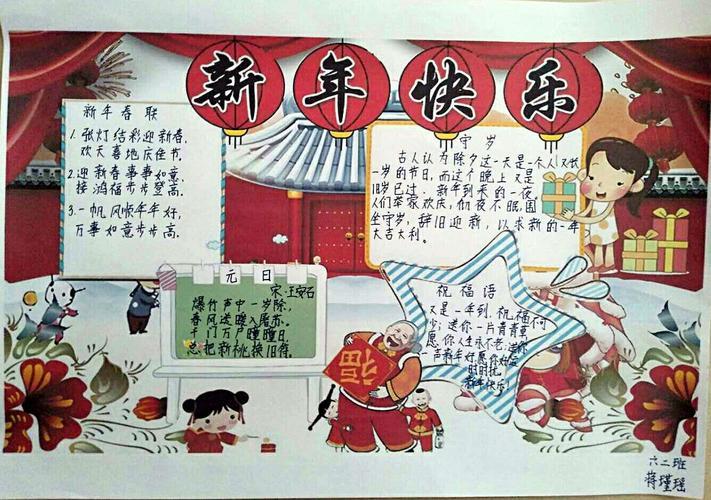 新年快乐
新年春联
1.张灯结彩迎新春,
欢天喜地庆佳书.
2.迎新春事事如意,
接鸿福步步登高.
3.一帆风顺年年好,
万事如意步步高.
守岁
古人认为除夕这一天是一个人又长
一岁的节日,而这个晚上又是
旧岁已过、新年到来的一夜,
人们举家欢庆,彻夜不眠,围
坐守岁,辞旧迎新,以求新的一年
大吉大利。
元日
宋·王安石
爆竹声中一岁除,
春风送暖入屠苏.
千门万户瞳瞳日,
总把新桃换旧符.
祝福语
又是一年到,祝福不可
少;送你一片青青草,
愿你人生永不老;送你
一声新年好,愿你好运
时时扰
新年快乐!
福
六二班
蒋瑾瑶